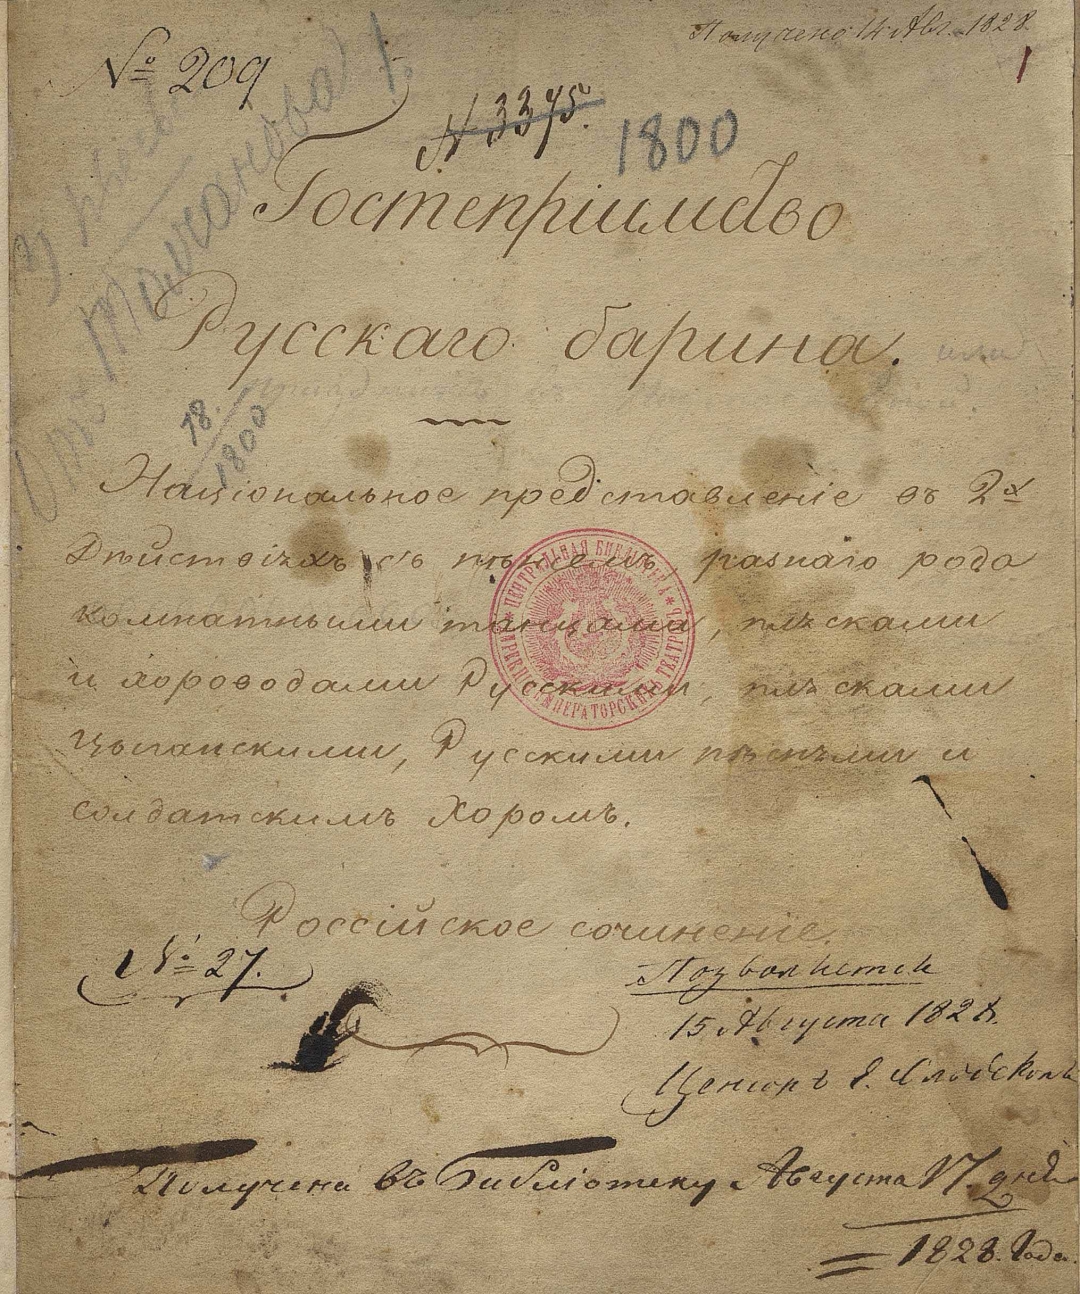 Получено 14 Авг. 1828.
1
№ 209
№ 3375.
1800
Гостепріимство
Русскаго барина. или
18.
1800
Національное представленіе въ 2х
Дѣйствіяхъ съ пѣніемъ, разнаго рода
комнатными танцами, плясками
и хороводами Русскими, плясками
Цыганскими, Русскими пѣснями и
солдатскимъ Хоромъ.
ЦЕНТРАЛЬНАЯ БИБЛІОТЕКА
ИМПЕРАТОРСКИХЪ ТЕАТРОВЪ
Россійское сочиненіе.
№ 27.
Позволяется
15 Августа 1828.
Ценсоръ
Получена въ Библіотеку Августа 17. дня
1828. Года.